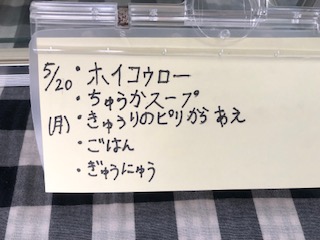 5/20・ホイコウロー
・ちゅうかスープ
(月)・きゅうりのピリからあえ
・ごはん
・ぎゅうにゅう